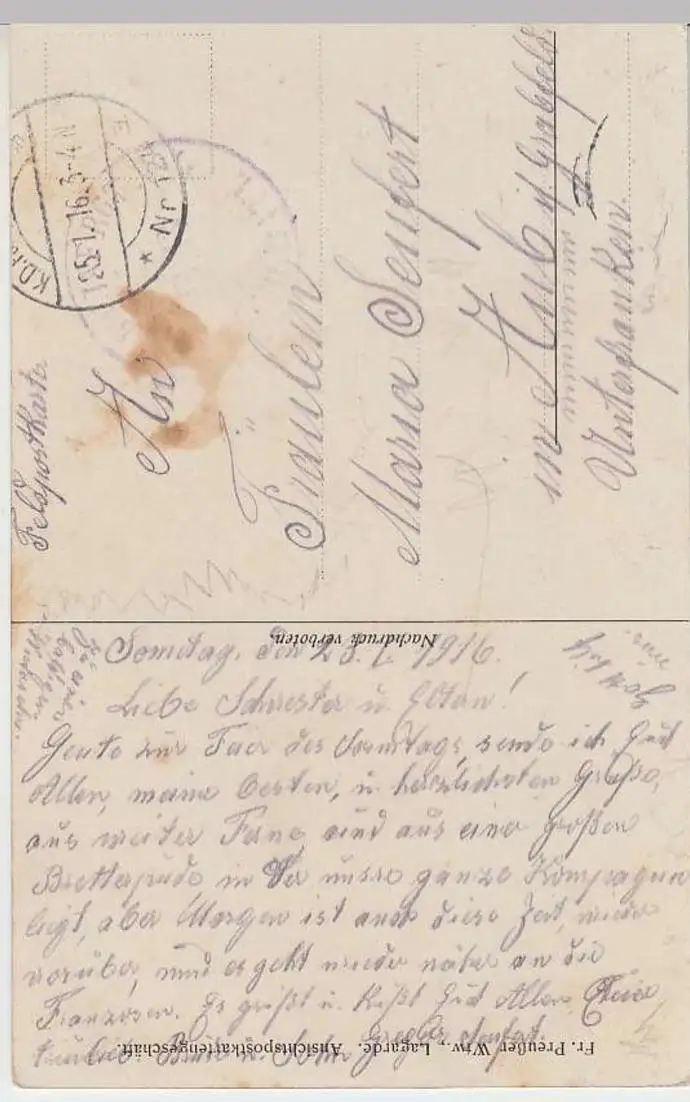 Feldpostkarte
K.D.
25.7.16. 3-4 N
Nr.
An
Fräulein
Maria Seufert
in Aub i/ Grabfeld
Unterfranken.
Nachdruck verboten.
Sonntag, den 23.7. 1916.
Liebe Schwester u. Eltern!
Heute zur Feier des Sonntags, sende ich Euch
Allen, meine besten, u. herzlichsten Grüße,
aus weiter Ferne, und aus einer großen
in der unsre ganze Kompagnie
liegt, aber Morgen ist auch diese Zeit, wieder
vorüber, und es geht wieder näher an die
Franzosen. Es grüßt u. küßt Euch Allen Euer
Bruder u. Sohn Gregor Seufert.
Fr. Preußer Wtw., Lagarde. Ansichtspostkartengeschäft.